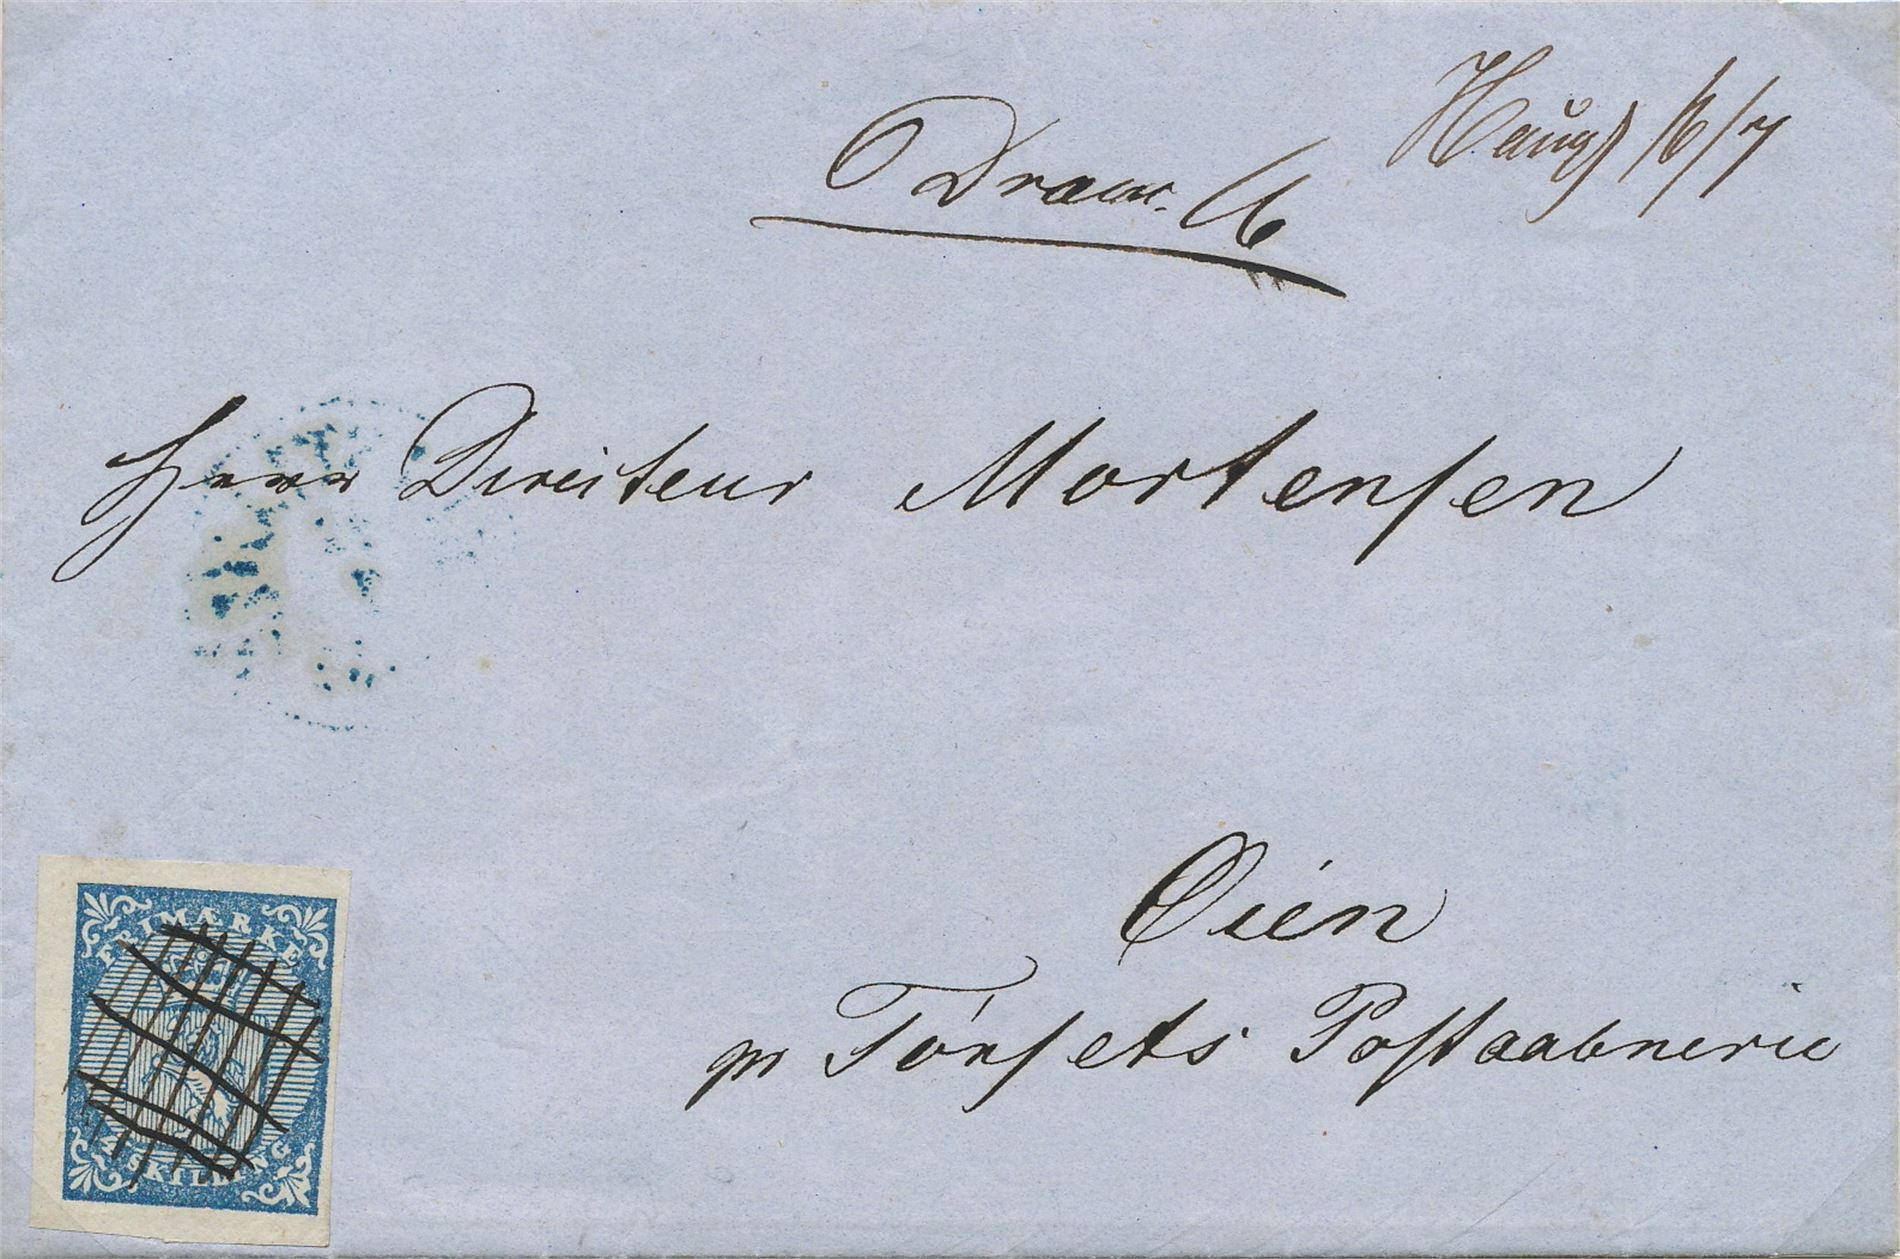 Haug 16/7
Dram. 16
Herr Directeur Mortensen
Øién
pr Tönsets Postaabnerie
FRIMÆRKE
4 SKILLING